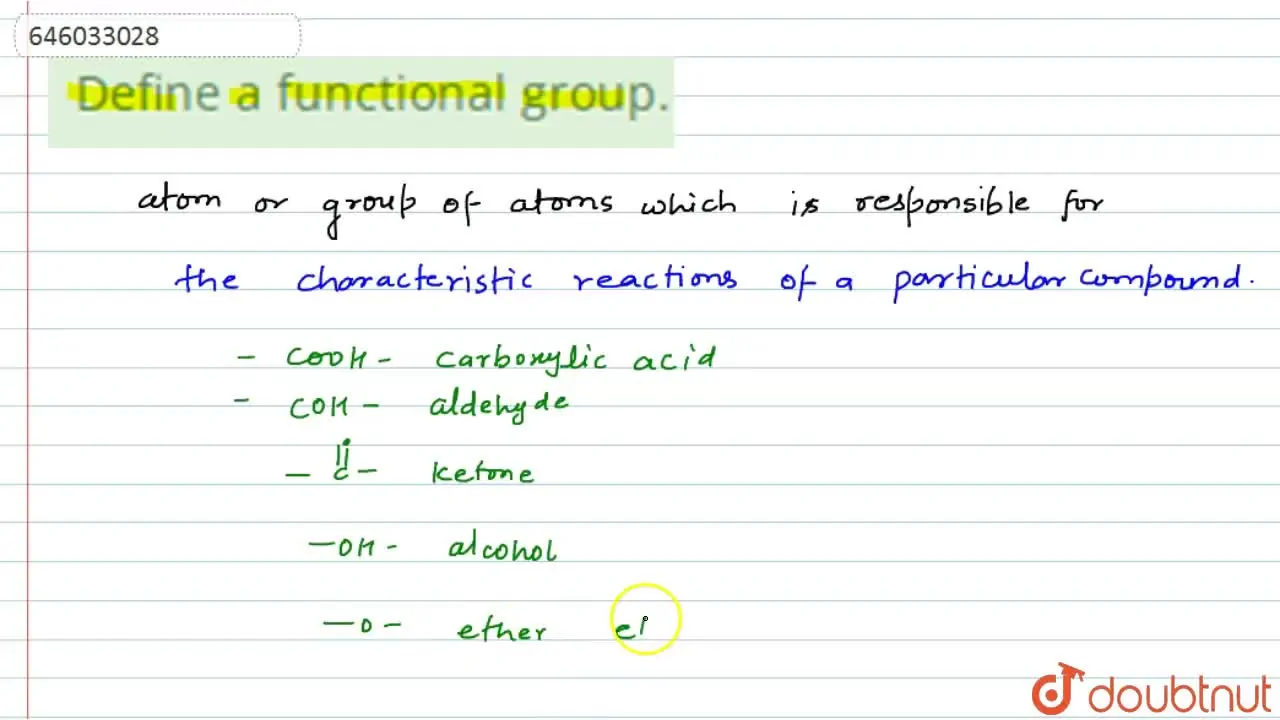 646033028
Define a functional group.
atom or group of atoms which is responsible for
the characteristic reactions of a particular compound.
- COOH - carboxylic acid
- COH - aldehyde
- C - ketone
-OH - alcohol
-O- ether et
doubtnut